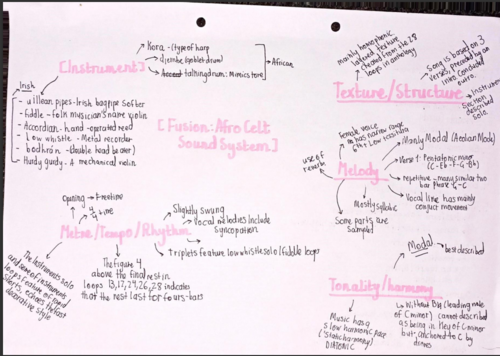 [Instruments]
Kora - (type of harp
djembe (goblet drum)
talking drum: Mimics tone
African
Irish
- uillean pipes - Irish bagpipe softer
- fiddle - folk musician's name violin
- Accordian - hand-operated reed
- Low whistle - Metal recorder
- bodhrán - (double head beater)
- Hurdy gurdy - A mechanical violin
[Fusion: Afro Celt
Sound System]
Texture/Structure
mainly homophonic
layered texture
created from the 28
loops in anthology
Song is based on 3
verses, preceded by an
intro
outro.
Instrumental
Section
described
solo.
Melody
use of
reverb
Female voice
has narrow range
Mainly Modal (Aeolian Mode)
Verse 1: Pentatonic minor
(C-Eb-F-G-Bb)
repetitive - many similar two
bar Phase
Vocal line has mainly
conjuct movement
Mostly syllabic
Some parts are
sampled
Metre/Tempo/Rhythm
Opening → Freetime
4/4 time
Slightly swung
Vocal melodies include
syncopation
triplets feature, low whistle solo/fiddle loops
The figure 4
above the final rest in
loops 13,17,24,26,28 indicates
that the rest last for four-bars
The instruments solo
and some of instruments
loops feature of rapid
decorative style
Tonality/harmony
Modal
best described
Without Bb (leading note
of C minor) cannot described
as being in Key of C minor
but, anchored to C by
drones
Music has a
slow harmonic pace
('Static harmony')
DIATONIC